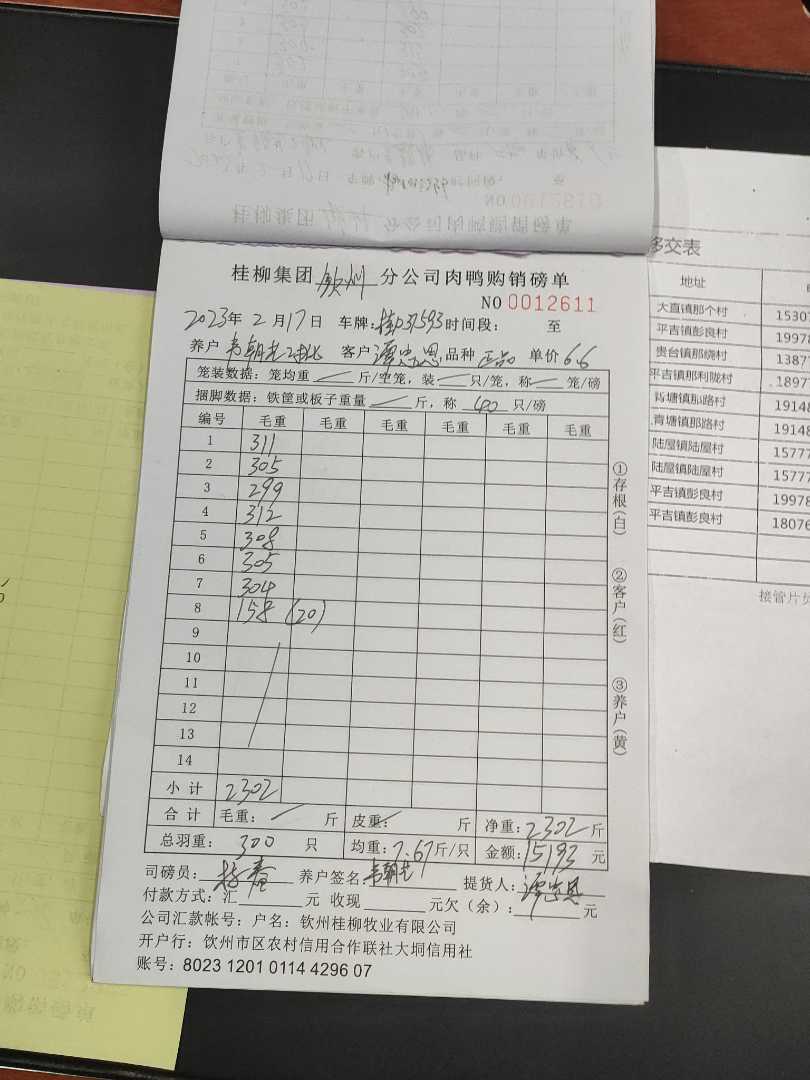 桂柳集团 钦州 分公司肉鸭购销磅单
NO 0012611
2023年 2 月 17 日 车牌:桂D37593 时间段: 至
养户 韦朝光 客户 谭忠恩 品种 正品 单价 6.6
笼装数据:笼均重 斤/空笼,装 只/笼,称 笼/磅
捆脚数据:铁筐或板子重量 斤,称 40 只/磅
编号 毛重 毛重 毛重 毛重 毛重 毛重
1 311
2 305
3 299
4 312
5 308
6 305
7 304
8 158 (20)
9
10
11
12
13
14
小 计 2302
合 计 毛重: 斤 皮重: 斤 净重:2302 斤
总羽重: 300 只 均重:7.67 斤/只 金额:15193 元
司磅员: 养户签名:韦朝光 提货人:谭忠恩
付款方式:汇 元 收现 元欠(余): 元
公司汇款帐号:户名:钦州桂柳牧业有限公司
开户行:钦州市区农村信用合作联社大垌信用社
账号:8023 1201 0114 4296 07
①存根(白)
②客户(红)
③养户(黄)
移交表
地址
大直镇那个村 15307
平吉镇彭良村 19978
贵台镇那统村 13877
平吉镇那利陇村 18977
青塘镇那路村 19148
青塘镇那路村 19148
陆屋镇陆屋村 15777
陆屋镇陆屋村 15777
平吉镇彭良村 19978
平吉镇彭良村 18076
接管片